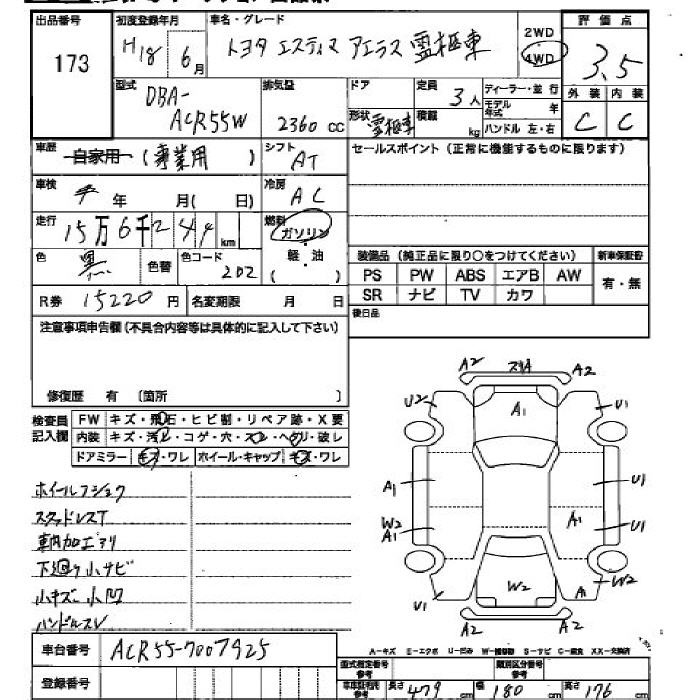 出品番号 初度登録年月 車名・グレード 2WD 評価点
173 H18 6月 トヨタ エスティマ アエラス 霊柩車 4WD 3.5
型式 排気量 ドア 定員 ディーラー・並行 外装 内装
DBA- 3人 モデル年式 年
ACR55W 2360 CC 形状 霊柩車 積載 kg ハンドル 左・右 C C
車歴 自家用・(事業用 ) シフト AT セールスポイント(正常に機能するものに限ります)
車検 年 月( 日) 冷房 AC
走行 15万6千2 4 km 燃料 ガソリン
色 黒 色替 色コード 202 軽・油 ( ) 装備品(純正品に限り○をつけてください) 新車保証書
PS PW ABS エアB AW 有・無
R券 15220円 名変期限 月 日 SR ナビ TV カワ
注意事項申告欄(不具合内容等は具体的に記入して下さい) 後日品
修復歴 有 〔箇所 〕
検査員 FW キズ・飛石・ヒビ割・リペア跡・X要
記入欄 内装 キズ・汚レ・コゲ・穴・スレ・ヘタリ・破レ
ドアミラー キズ・ワレ ホイール・キャップ キズ・ワレ
A2 スリA A2
U2 A1 U1
A1 U1
W2 A1 A1 U1
U1 W2 A1 W2
A2 A2
ホイールフショク
スタッドレスT
車内加工アリ
下廻り小サビ
小キズ 小凹
ハンドルスレ
車台番号 ACR55-7007925
A-キズ E-エクボ U-凹み W-補修跡 S-サビ C-腐食 XX-交換済
登録番号 型式指定番号 参考 類別区分番号 参考
長さ 479 cm 幅 180 cm 高さ 176 cm